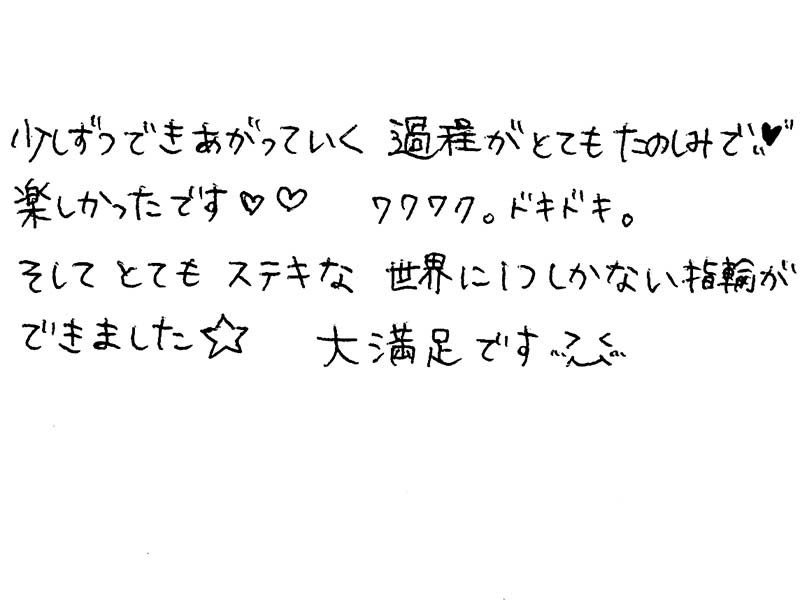 少しずつできあがっていく 過程がとてもたのしみで♥
楽しかったです♡♡ ワクワク。ドキドキ。
そして とても ステキな 世界に1つしかない指輪が
できました☆ 大満足です